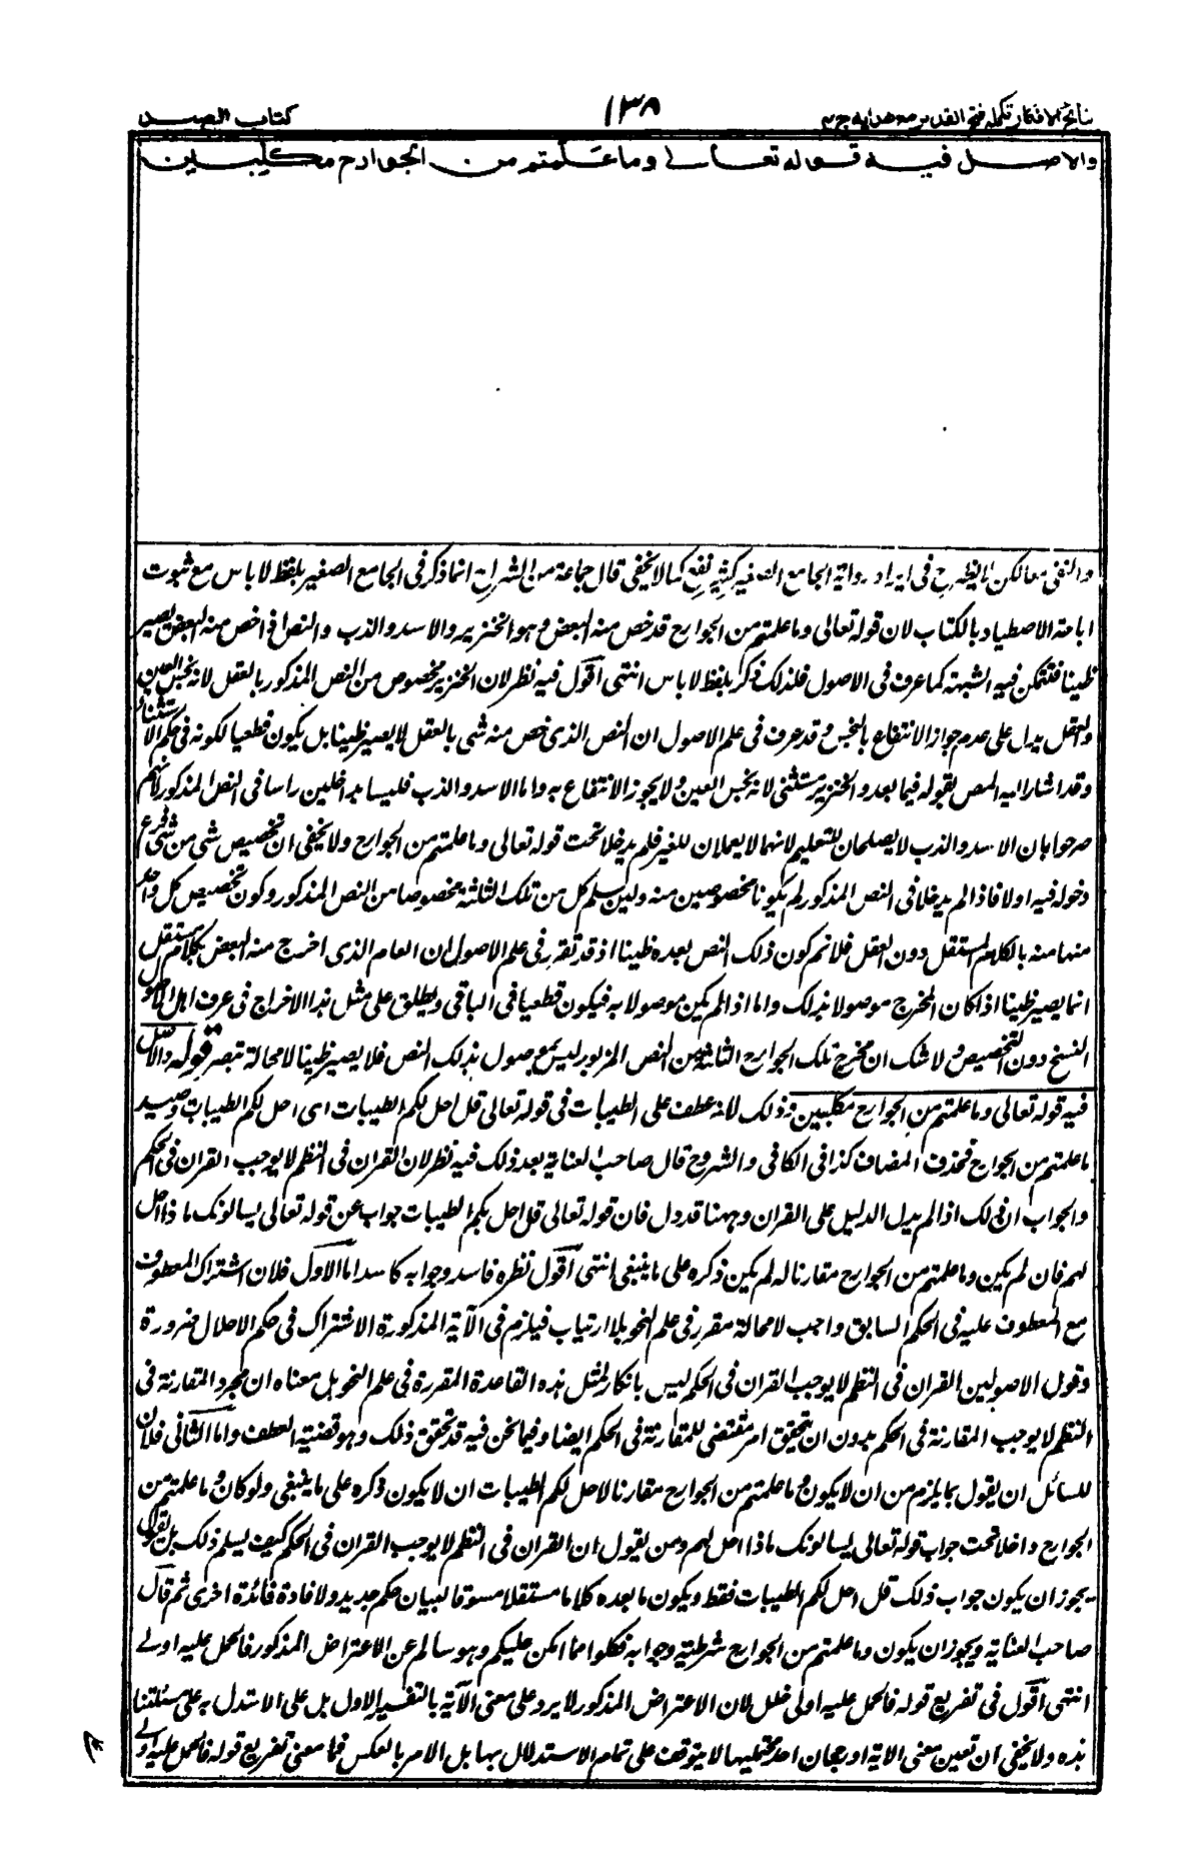 نتائج الافكار تكمله فتح القدير مع هدايه ج
١٣٨
كتاب الصيد
والاصل فيه قوله تعالى وما علمتم من الجوارح مكلبين
والنفى معا لكن فى ايراد رواية الجامع الصغير كثير نفع كما لا يخفى قال جماعة من الشراح انما ذكر فى الجامع الصغير بلفظ لا باس مع ثبوت
اباحة الاصطياد بالكتاب لان قوله تعالى وما علمتم من الجوارح قد خص منه البعض وهو الخنزير والاسد والذب والنص اذا خص منه البعض يصير
ظنيا فتمكن فيه الشبهة كما عرف فى الاصول فلذلك ذكر بلفظ لا باس انتهى اقول فيه نظر لان الخنزير مخصوص من النص المذكور بالعقل لانه نجس العين
والعقل يدل على عدم جواز الانتفاع بالنجس وقد عرف فى علم الاصول ان النص الذى خص منه شى بالعقل لا يصير ظنيا بل يكون قطعيا لكونه فى حكم الاستثناء
وقد اشار اليه المص بقوله فيما بعد والخنزير مستثنى لانه نجس العين ولا يجوز الانتفاع به واما الاسد والذب فليسا بداخلين راسا فى النص المذكور لانهم
صرحوا بان الاسد والذب لا يصلحان للتعليم لانهما لا يعملان للغير فلم يدخلا تحت قوله تعالى وما علمتم من الجوارح ولا يخفى ان تخصيص شى من شى فرع
دخوله فيه اولا فاذا لم يدخلا فى النص المذكور لم يكونا مخصوصين منه ولئن سلم كل من تلك الثلثة مخصوصا من النص المذكور وكون تخصيص كل واحد
منها منه بالكلام المستقل دون العقل فلا نم كون ذلك النص بعده ظنيا اذ قد تقرر فى علم الاصول ان العام الذى اخرج منه البعض بكلام مستقل
انما يصير ظنيا اذا كان المخرج موصولا بذلك واما اذا لم يكن موصولا به فيكون قطعيا فى الباقى ويطلق على مثل هذا الاخراج فى عرف اهل الاصول
النسخ دون التخصيص ولا شك ان مخرج تلك الجوارح الثلثة من النص المزبور ليس بموصول بذلك النص فلا يصير ظنيا لا محالة تبصر قوله والاصل
فيه قوله تعالى وما علمتم من الجوارح مكلبين وذلك لانه عطف على الطيبات فى قوله تعالى قل احل لكم الطيبات اى احل لكم الطيبات وصيد
ما علمتم من الجوارح فحذف المضاف كذا فى الكافى والشروح قال صاحب العناية بعد ذلك فيه نظر لان القران فى النظم لا يوجب القران فى الحكم
والجواب ان ذلك اذا لم يدل الدليل على القران وههنا قد دل فان قوله تعالى قل احل لكم الطيبات جواب عن قوله تعالى يسالونك ماذا احل
لهم فان لم يكن وما علمتم من الجوارح مقارنا له لم يكن ذكره على ما ينبغى انتهى اقول نظره فاسد وجوابه كاسد اما الاول فلان اشتراك المعطوف
مع المعطوف عليه فى الحكم السابق واجب لا محالة مقرر فى علم النحو بلا ارتياب فيلزم فى الآية المذكورة الاشتراك فى حكم الاحلال ضرورة
وقول الاصوليين القران فى النظم لا يوجب القران فى الحكم ليس بانكار لمثل هذه القاعدة المقررة فى علم النحو بل معناه ان مجرد المقارنة فى
النظم لا يوجب المقارنة فى الحكم بدون ان يتحقق امر مقتضى للمقارنة فى الحكم ايضا وفيما نحن فيه قد تحقق ذلك وهو قضية العطف واما الثانى فلان
للسائل ان يقول بما يلزم من ان لا يكون وما علمتم من الجوارح مقارنا لاحل لكم الطيبات ان لا يكون ذكره على ما ينبغى ولو كان وما علمتم من
الجوارح داخلا تحت جواب قوله تعالى يسالونك ماذا احل لهم ومن يقول ان القران فى النظم لا يوجب القران فى الحكم كيف يسلم ذلك بل يقول
يجوز ان يكون جواب ذلك قل احل لكم الطيبات فقط ويكون ما بعده كلاما مستقلا مسوقا لبيان حكم جديد ولافادة فائدة اخرى ثم قال
صاحب العناية ويجوز ان يكون وما علمتم من الجوارح شرطية وجوابه فكلوا مما امسكن عليكم وهو سالم عن الاعتراض المذكور فالحمل عليه اولى
انتهى اقول فى تفريع قوله فالحمل عليه اولى خلل لان الاعتراض المذكور لا يرد على معنى الآية بالتفسير الاول بل على الاستدلال به على مسئلتنا
هذه ولا يخفى ان تعين معنى الاية او رجحان احد محتمليها لا يتوقف على تمام الاستدلال بها بل الامر بالعكس فما معنى تفريع قوله فالحمل عليه اولى